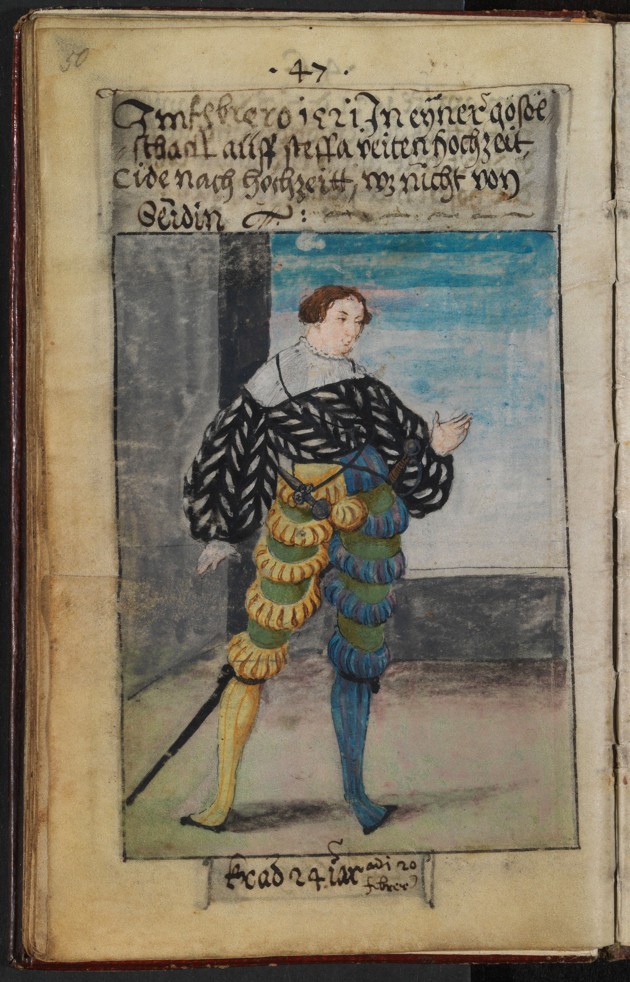 50
· 47 ·
Im febrero 1521 In eyner gösöl
schafft auff steffa veiten hochzeit,
nach hochzeitt, wz nicht von
Seidin
krad 24 iar adi 20
febrer